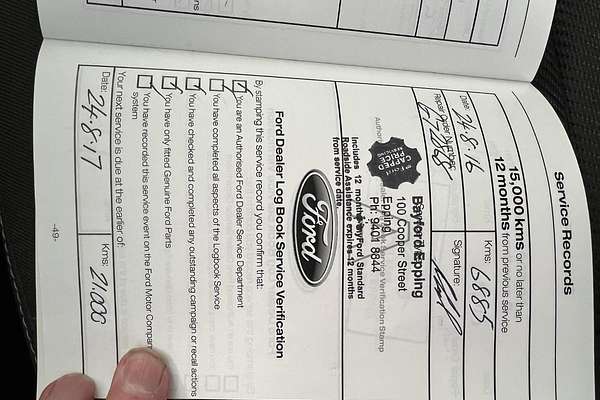 Service Records
15,000 kms or no later than
12 months from previous service
Date: 24.8.16
Kms: 6885
Repair Order Number:
Signature:
Bayford Epping
100 Cooper Street
Epping
Ph: 9401 8844
FORD
CAPPED
PRICE
SERVICING
Service Verification Stamp
Includes 12 months Ford Standard
Roadside Assistance expires 12 months
from service date.
Ford
Ford Dealer Log Book Service Verification
By stamping this service record you confirm that:
You are an Authorised Ford Dealer Service Department
You have completed all aspects of the Logbook Service
You have checked and completed any outstanding campaign or recall actions
You have only fitted Genuine Ford Parts
You have recorded this service event on the Ford Motor Company
system
Your next service is due at the earlier of:
Date: 24.8.17
Kms: 21.000
-49-